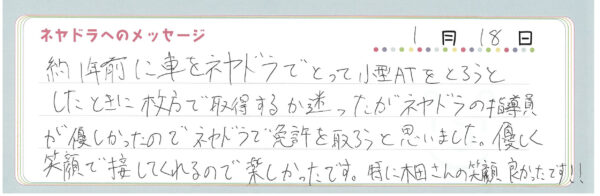 ネヤドラへのメッセージ
1月18日
約1年前に車をネヤドラでとって小型ATをとろうと
したときに枚方で取得するか迷ったがネヤドラの指導員
が優しかったのでネヤドラで免許を取ろうと思いました。優しく
笑顔で接してくれるので楽しかったです。特に本田さんの笑顔良かったです!!